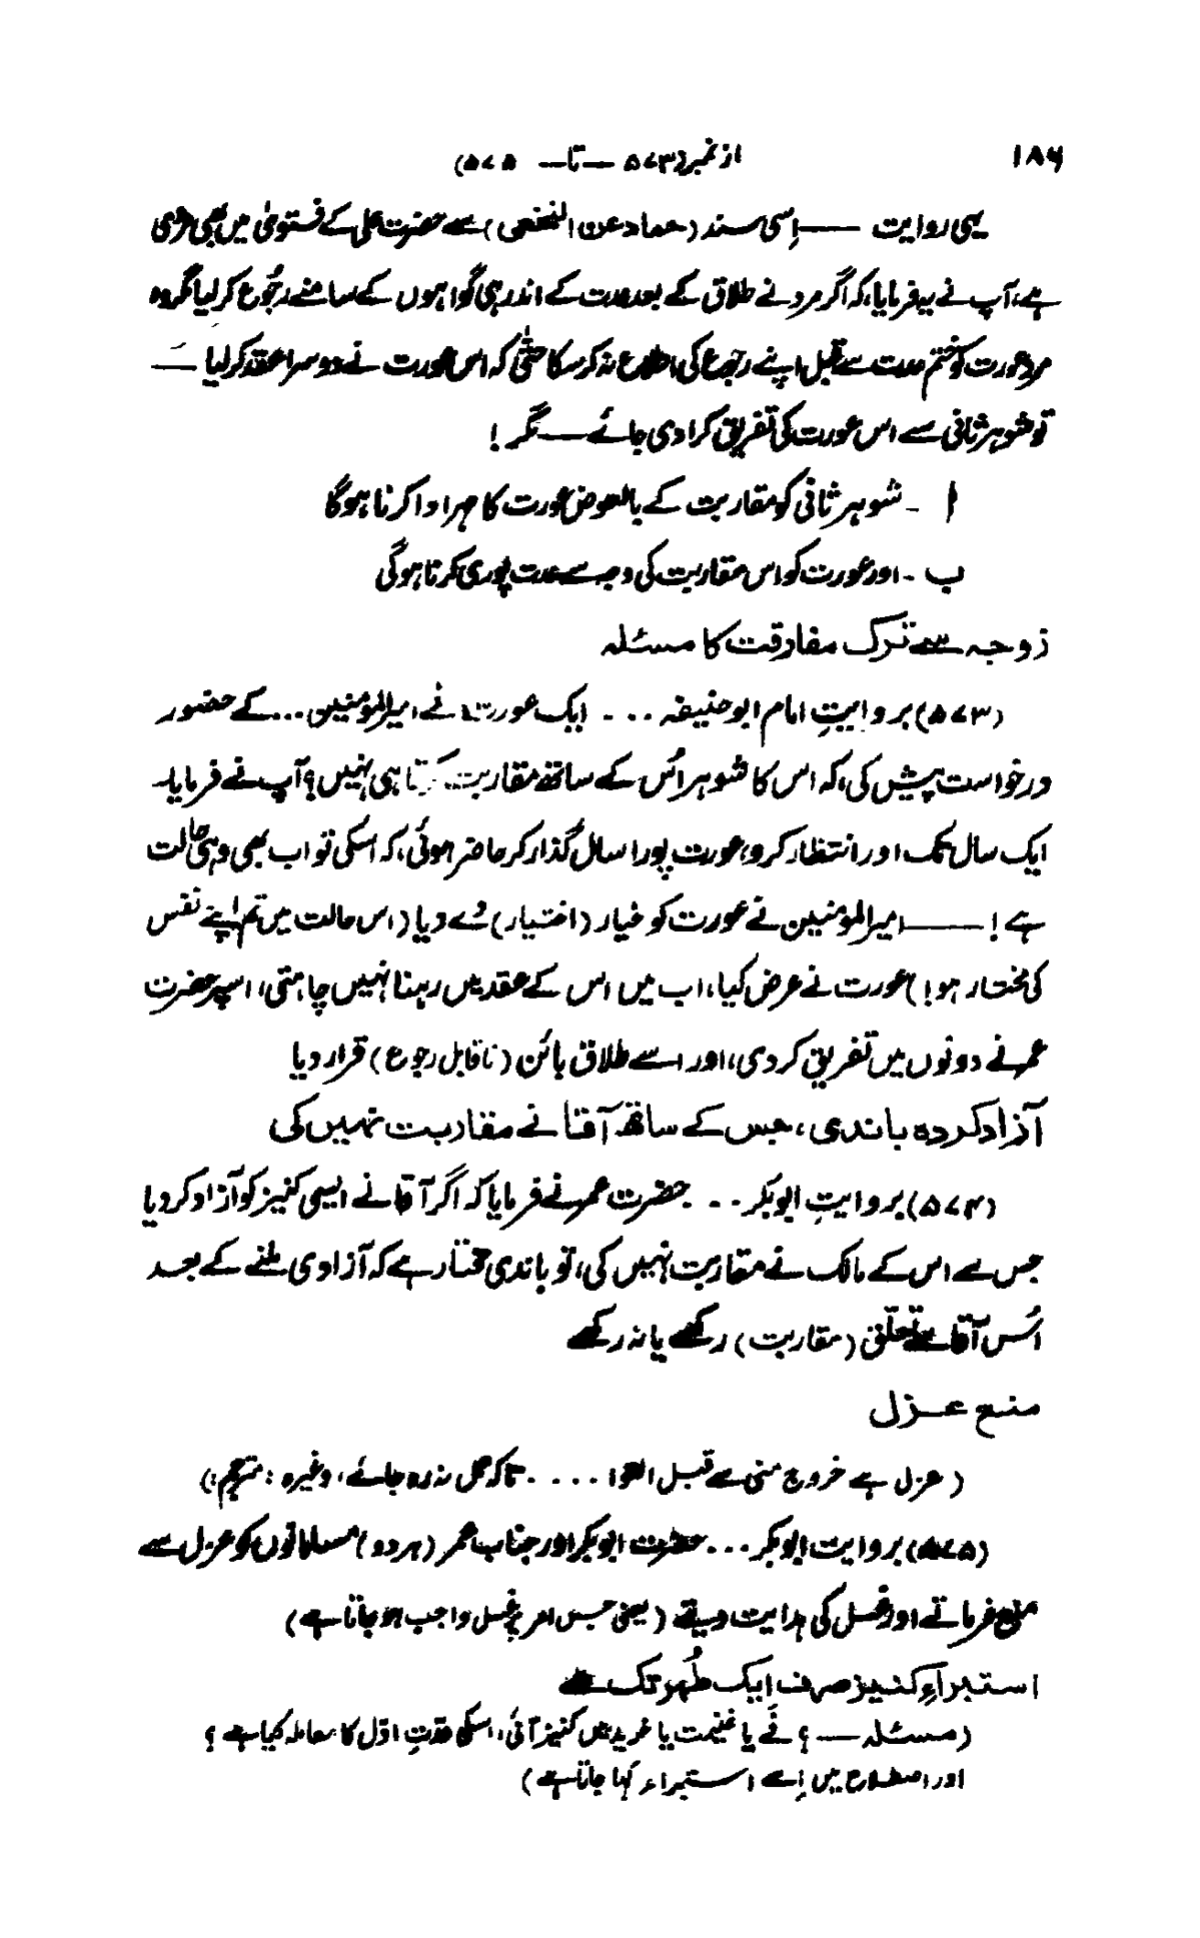 ۱۸۶
از نمبر (۵۷۳ — تا — ۵۷۵)
یہی روایت —— اِسی سند (حماد عن النخعی) سے حضرت علی کے فتویٰ میں بھی مروی
ہے، آپ نے یہ فرمایا، کہ اگر مرد نے طلاق کے بعد عدت کے اندر ہی گواہوں کے سامنے رجُوع کر لیا مگر وہ
مرد عورت کو ختم عدت سے قبل اپنے رجوع کی اطلاع نہ کر سکا حتّٰی کہ اس عورت نے دوسرا عقد کر لیا —
تو شوہر ثانی سے اس عورت کی تفریق کرا دی جائے — مگر !
ا - شوہر ثانی کو مقاربت کے بالعوض عورت کا مہر ادا کرنا ہوگا
ب - اور عورت کو اس مقاربت کی وجہ سے عدت پوری کرنا ہوگی
زوجہ سے ترک مفارقت کا مسئلہ
(۵۷۳) بروایتِ امام ابو حنیفہ ... ایک عورت نے امیر المؤمنین ... کے حضور
درخواست پیش کی، کہ اس کا شوہر اُس کے ساتھ مقاربت کرتا ہی نہیں؟ آپ نے فرمایا۔
ایک سال تک اور انتظار کرو، عورت پورا سال گذار کر حاضر ہوئی، کہ اسکی تو اب بھی وہی حالت
ہے! —— امیر المؤمنین نے عورت کو خیار (اختیار) دے دیا (اس حالت میں تم اپنے نفس
کی مختار ہو!) عورت نے عرض کیا، اب میں اس کے عقد میں رہنا نہیں چاہتی، اسپر حضرت
عمر نے دونوں میں تفریق کر دی، اور اسے طلاق بائن (ناقابل رجوع) قرار دیا
آزاد کردہ باندی، جس کے ساتھ آقا نے مقاربت نہیں کی
(۵۷۴) بروایتِ ابوبکر .. حضرت عمر نے فرمایا کہ اگر آقا نے ایسی کنیز کو آزاد کر دیا
جس سے اس کے مالک نے مقاربت نہیں کی، تو باندی مختار ہے کہ آزادی ملنے کے بعد
اُس آقا سے تعلق (مقاربت) رکھے یا نہ رکھے
منع عزل
(عزل ہے خروج منی سے قبل .... تاکہ حمل نہ رہ جائے، وغیرہ : مترجم :)
(۵۷۵) بروایت ابوبکر ... حضرت ابوبکر اور جناب عمر (ہر دو) مسلمانوں کو عزل سے
منع فرماتے اور غسل کی ہدایت دیتے (یعنی جس امر پر غسل واجب ہو جاتا ہے)
استبراءِ کنیز صرف ایک طُہر تک ہے
(مسئلہ — ؟ فَے یا غنیمت یا خرید میں کنیز آئی، اسکی عدتِ اوّل کا معاملہ کیا ہے؟
اور اصطلاح میں اِسے استبراء کہا جاتا ہے)